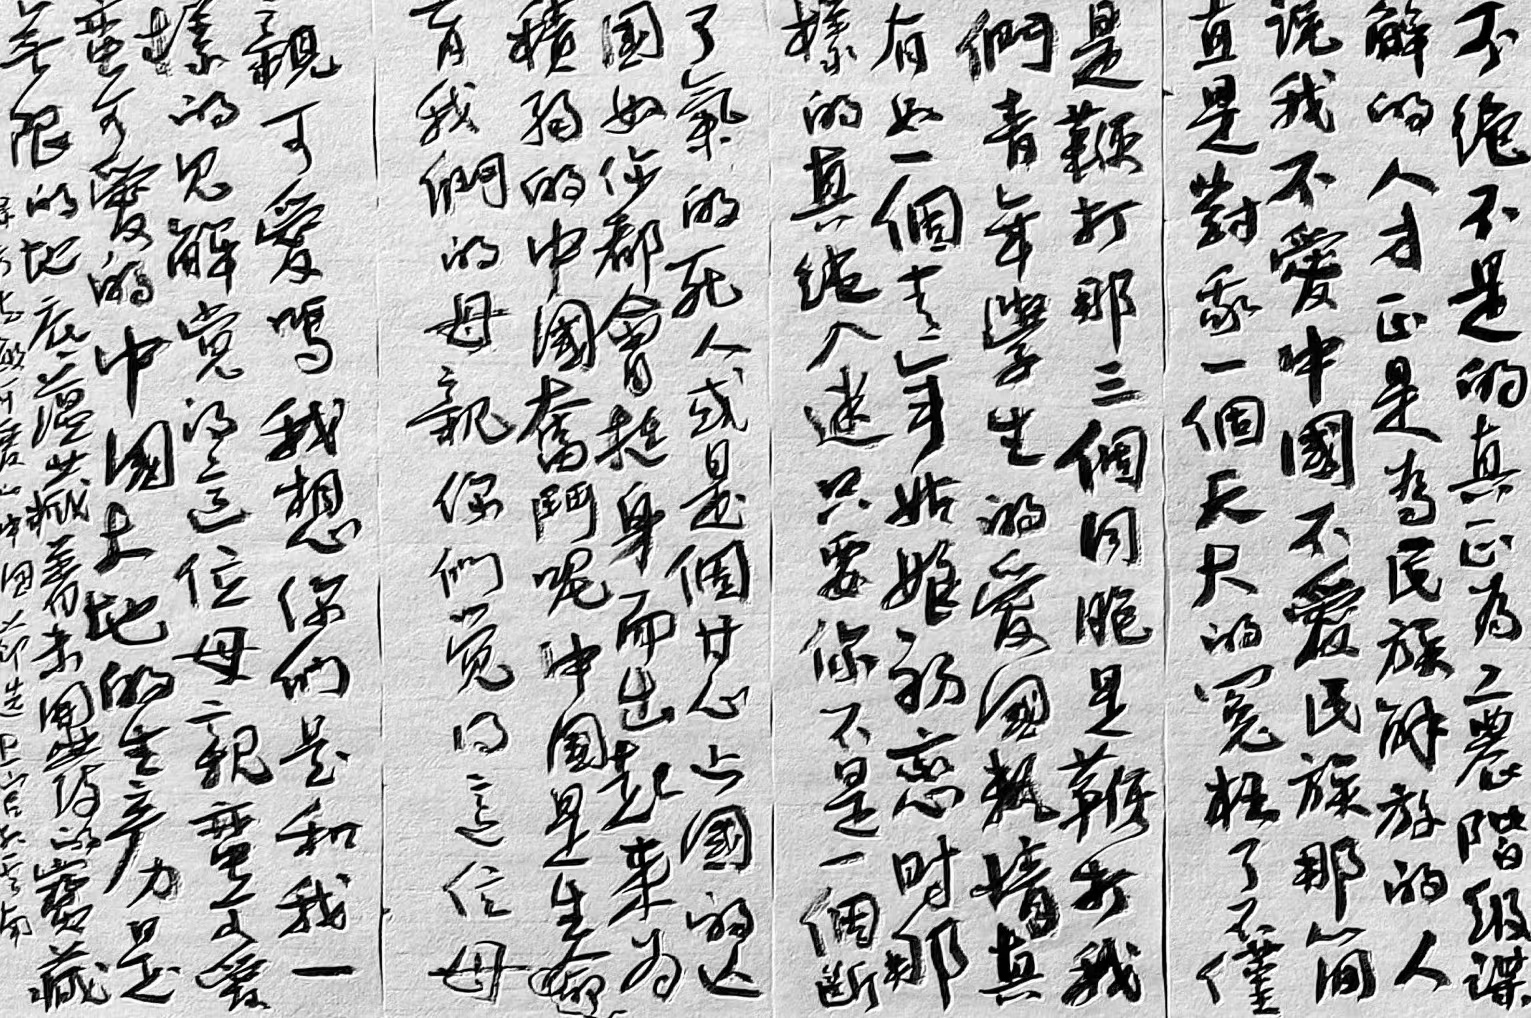 不絶不是的真正為工農階級謀
解的人才正是為民族解放的人
説我不愛中國不愛民族那簡
直是對我一個天大的冤枉了不僅
是鞭打那三個同胞是鞭打我
們青年學生的愛國熱情真
有如一個青年姑娘初戀时那
樣的真純入迷只要你不是一個断
了氣的死人或是個甘心亡國的人
國如你都會挺身而出起來为
積弱的中國奮鬥呢中國是生
育我們的母親你們觉得這位母
親可愛嗎我想你們是和我一
樣的見解觉得這位母親蛮可愛
蛮可愛的中國土地的生産力是
無限的地底蕴藏着未開發的寶藏